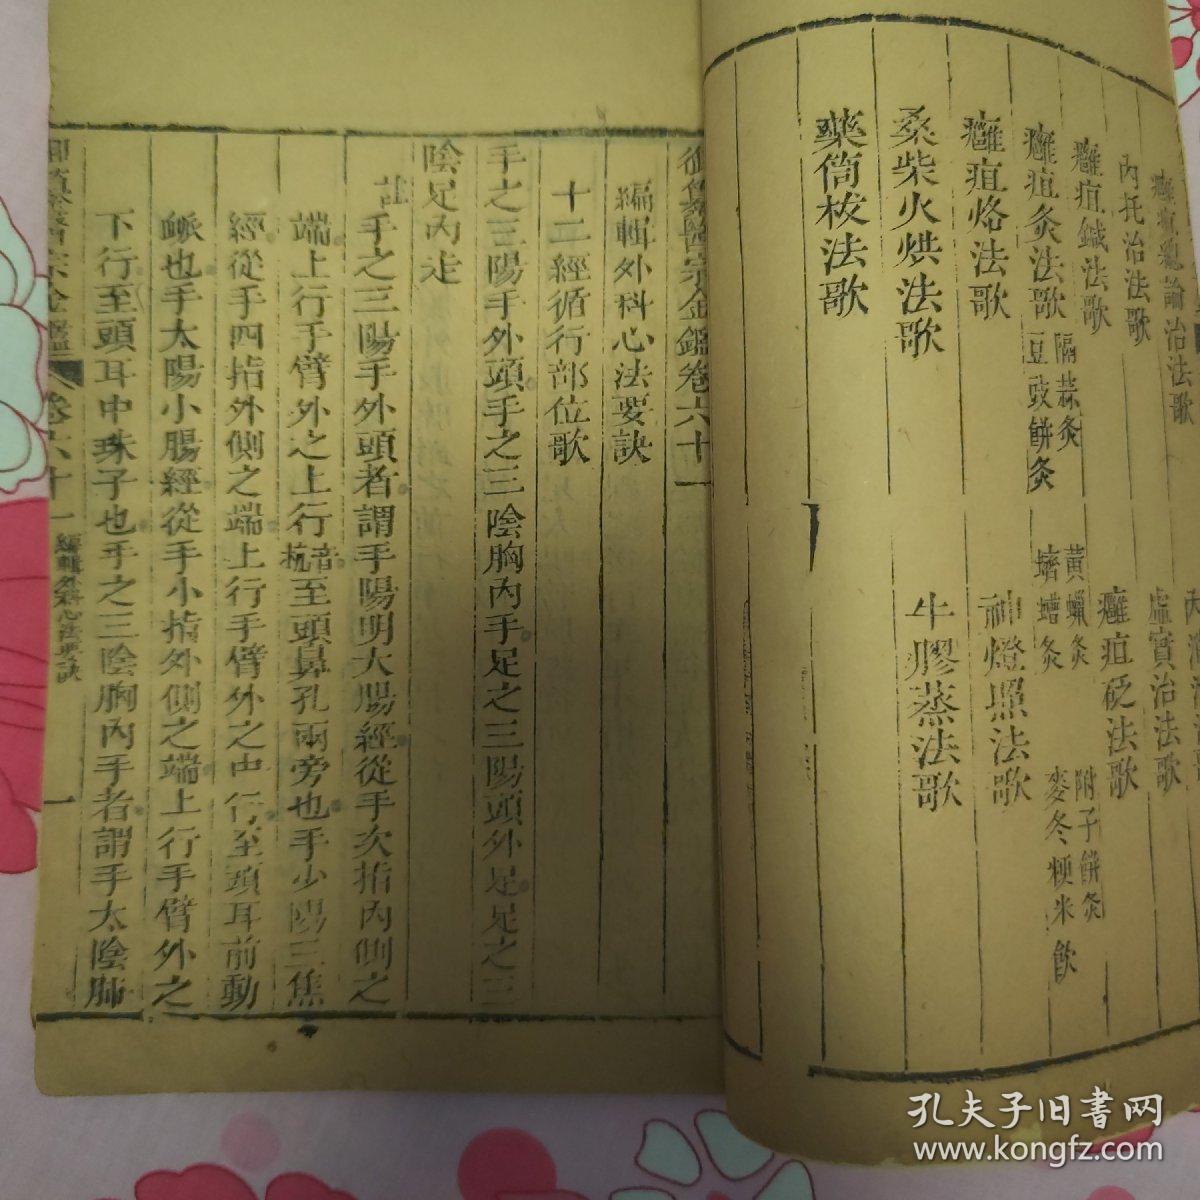 癰疽總論治法歌
內托治法歌
虛實治法歌
癰疽鍼法歌
癰疽砭法歌
癰疽灸法歌 隔蒜灸 豆豉餅灸 黃蠟灸 蠐螬灸 附子餅灸 麥冬粳米飲
癰疽烙法歌 神燈照法歌
桑柴火烘法歌 牛膠蒸法歌
藥筒拔法歌
御纂醫宗金鑑卷六十一
編輯外科心法要訣
十二經循行部位歌
手之三陽手外頭手之三陰胸內手足之三陽頭外足足之三
陰足內走
註手之三陽手外頭者謂手陽明大腸經從手次指內側之
端上行手臂外之上行音杭至頭鼻孔兩旁也手少陽三焦
經從手四指外側之端上行手臂外之中行至頭耳前動
脈也手太陽小腸經從手小指外側之端上行手臂外之
下行至頭耳中珠子也手之三陰胸內手者謂手太陰肺
御纂醫宗金鑑 卷六十一 編輯外科心法要訣 一
孔夫子旧书网
www.kongfz.com